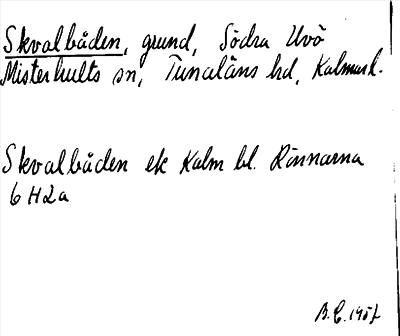 Skvalbåden, grund, Södra Uvö
Misterhults sn, Tunaläns hd, Kalmar l.
Skvalbåden ek Kalm bl. Rönnarna
6 H 2 a